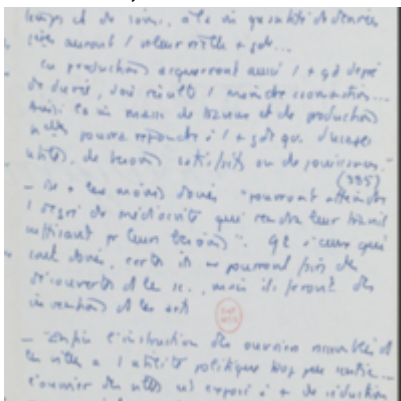 temps et de soins, a la m quantité de denrées
auront 1 valeur réelle + gde...
en productions acquerront aussi 1 + gd degré
de durée, d'où résulte 1 moindre consommation...
ainsi la m masse de travaux et de productions
pourra répondre à 1 + gde qu. d'usages
utiles, de besoins satisfaits ou de jouissances."
(385)
- De + les moins doués "pourront atteindre
1 degré de médiocrité qui rendra leur travail
suffisant pr leurs besoins". Qt à ceux qui
sont doués, certes ils ne pourront faire de
découvertes ds les sc., mais ils feront des
inventions ds les arts
- "Enfin l'instruction des ouvriers rassemblés ds
les villes a 1 utilité politique trop peu sentie...
l'ouvrier des villes est exposé à + de séduction